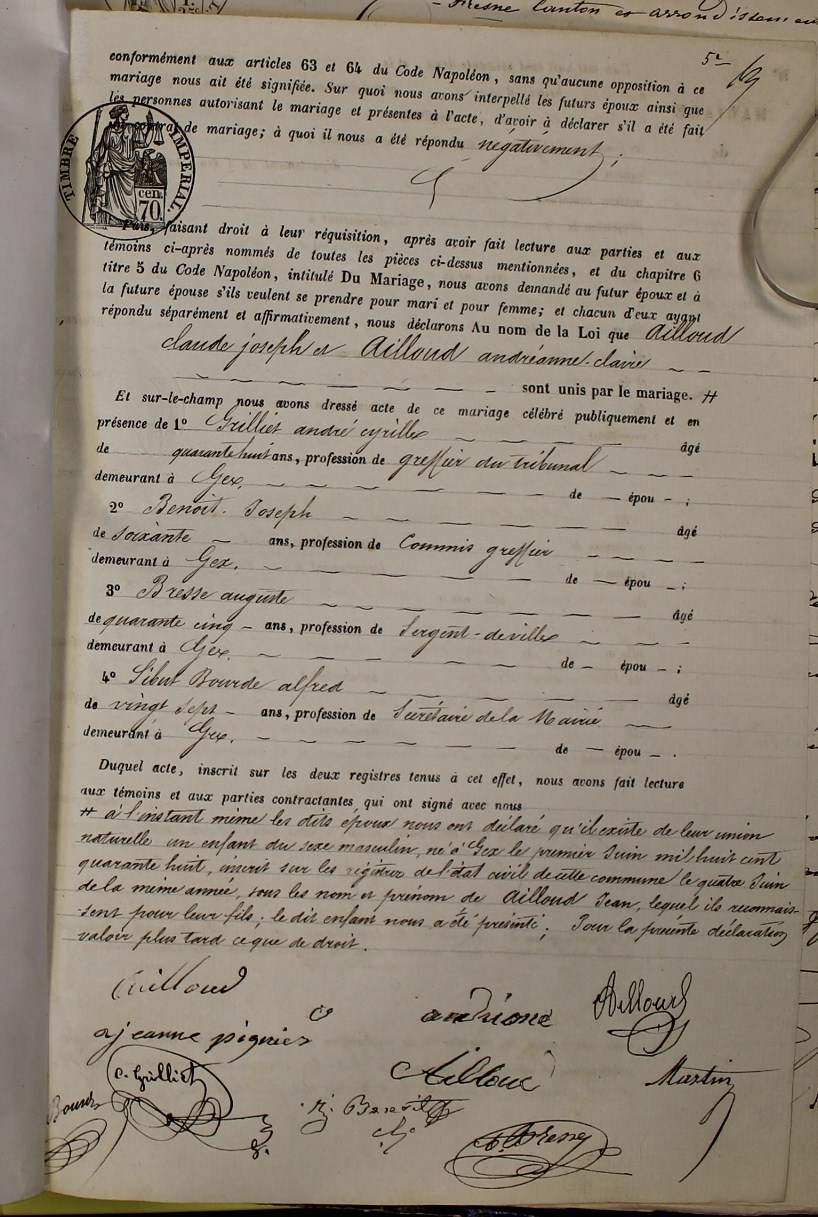 Fresne Canton et arrondissem
5e
conformément aux articles 63 et 64 du Code Napoléon, sans qu'aucune opposition à ce
mariage nous ait été signifiée. Sur quoi nous avons interpellé les futurs époux ainsi que
les personnes autorisant le mariage et présentes à l'acte, d'avoir à déclarer s'il a été fait
de mariage; à quoi il nous a été répondu négativement;
TIMBRE IMPERIAL.
cen.
70.
Puis, faisant droit à leur réquisition, après avoir fait lecture aux parties et aux
témoins ci-après nommés de toutes les pièces ci-dessus mentionnées, et du chapitre 6
titre 5 du Code Napoléon, intitulé Du Mariage, nous avons demandé au futur époux et à
la future épouse s'ils veulent se prendre pour mari et pour femme; et chacun d'eux ayant
répondu séparément et affirmativement, nous déclarons Au nom de la Loi que Ailloud
claude joseph et Ailloud andréanne-claire
sont unis par le mariage. #
Et sur-le-champ nous avons dressé acte de ce mariage célébré publiquement et en
présence de 1o Grilliet andré cyrille âgé
de quarante huit ans, profession de greffier du tribunal
demeurant à Gex. de — épou - ;
2o Benoit Joseph âgé
de soixante ans, profession de Commis greffier
demeurant à Gex. de — épou - ;
3o Bresse auguste âgé
de quarante cinq - ans, profession de Sergent-de-ville
demeurant à Gex. de - épou - ;
4o Sibut Bourde alfred âgé
de vingt sept - ans, profession de Secrétaire de la Mairie
demeurant à Gex. de — épou - .
Duquel acte, inscrit sur les deux registres tenus à cet effet, nous avons fait lecture
aux témoins et aux parties contractantes qui ont signé avec nous
# à l'instant même les dits époux nous ont déclaré qu'il existe de leur union
naturelle un enfant du sexe masculin, né à Gex le premier Juin mil huit cent
quarante huit, inscrit sur les régistres de l'état civil de cette commune le quatre Juin
de la même année, sous les nom et prénom de Ailloud Jean, lequel ils reconnais-
sent pour leur fils; le dit enfant nous a été présenté; Pour la présente déclaration
valoir plus tard ce que de droit.
Ailloud
andriane
Ailloud
jeanne pignier
c. Grilliet
Ailloud
Martin
Bourde
Benoit
Bresse